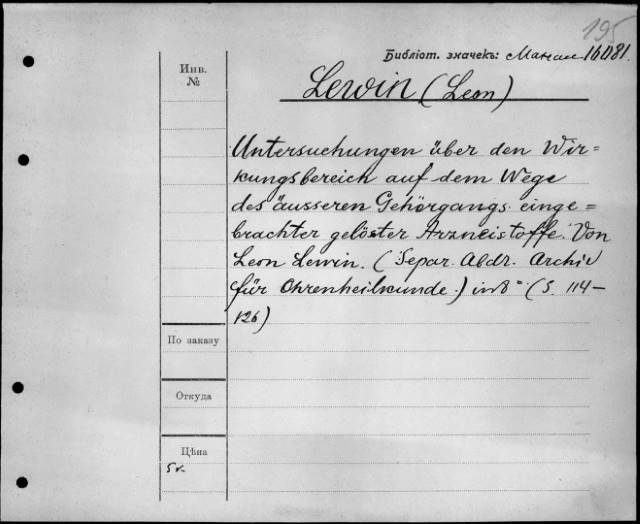 195
Библіот. значекъ: 16081.
Инв.
№
Lewin (Leon)
Untersuchungen über den Wir=
kungsbereich auf dem Wege
des äusseren Gehörgangs einge=
brachter gelöster Arzneistoffe. Von
Leon Lewin. (Separ. Abdr. Archiv
für Ohrenheilkunde.) in 8° (S. 114–
126)
По заказу
Откуда
Цѣна